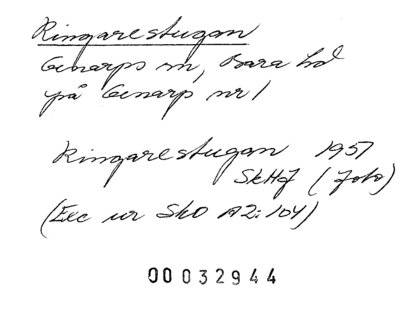 Ringarestugan
Genarps sn, Bara hd
på Genarp nr 1
Ringarestugan 1957
SkHf (foto)
(Exc ur SkO A2:104)
00032944